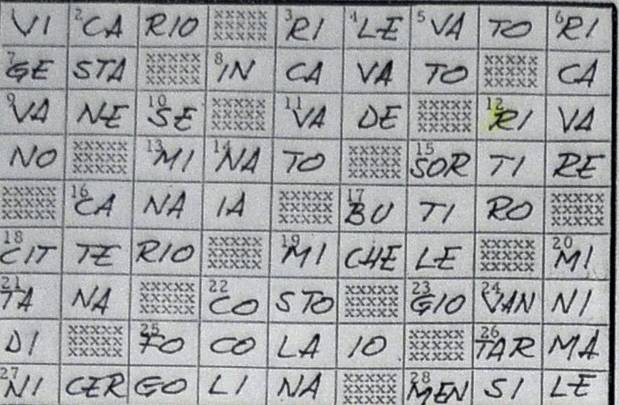 VI 2 CA RIO XXXXX 3 RI 4 LE 5 VA TO 6 RI
7 GE STA XXXXX 8 IN CA VA TO XXXXX CA
9 VA NE 10 SE XXXXX 11 VA DE XXXXX 12 RI VA
NO XXXXX 13 MI 14 NA TO XXXXX 15 SOR TI RE
XXXXX 16 CA NA IA XXXXX 17 BU TI RO XXXXX
18 CIT TE RIO XXXXX 19 MI CHE LE XXXXX 20 MI
21 TA NA XXXXX 22 CO STO XXXXX 23 GIO 24 VAN NI
DI XXXXX 25 FO CO LA IO XXXXX 26 TAR MA
27 NI CER GO LI NA XXXXX 28 MEN SI LE